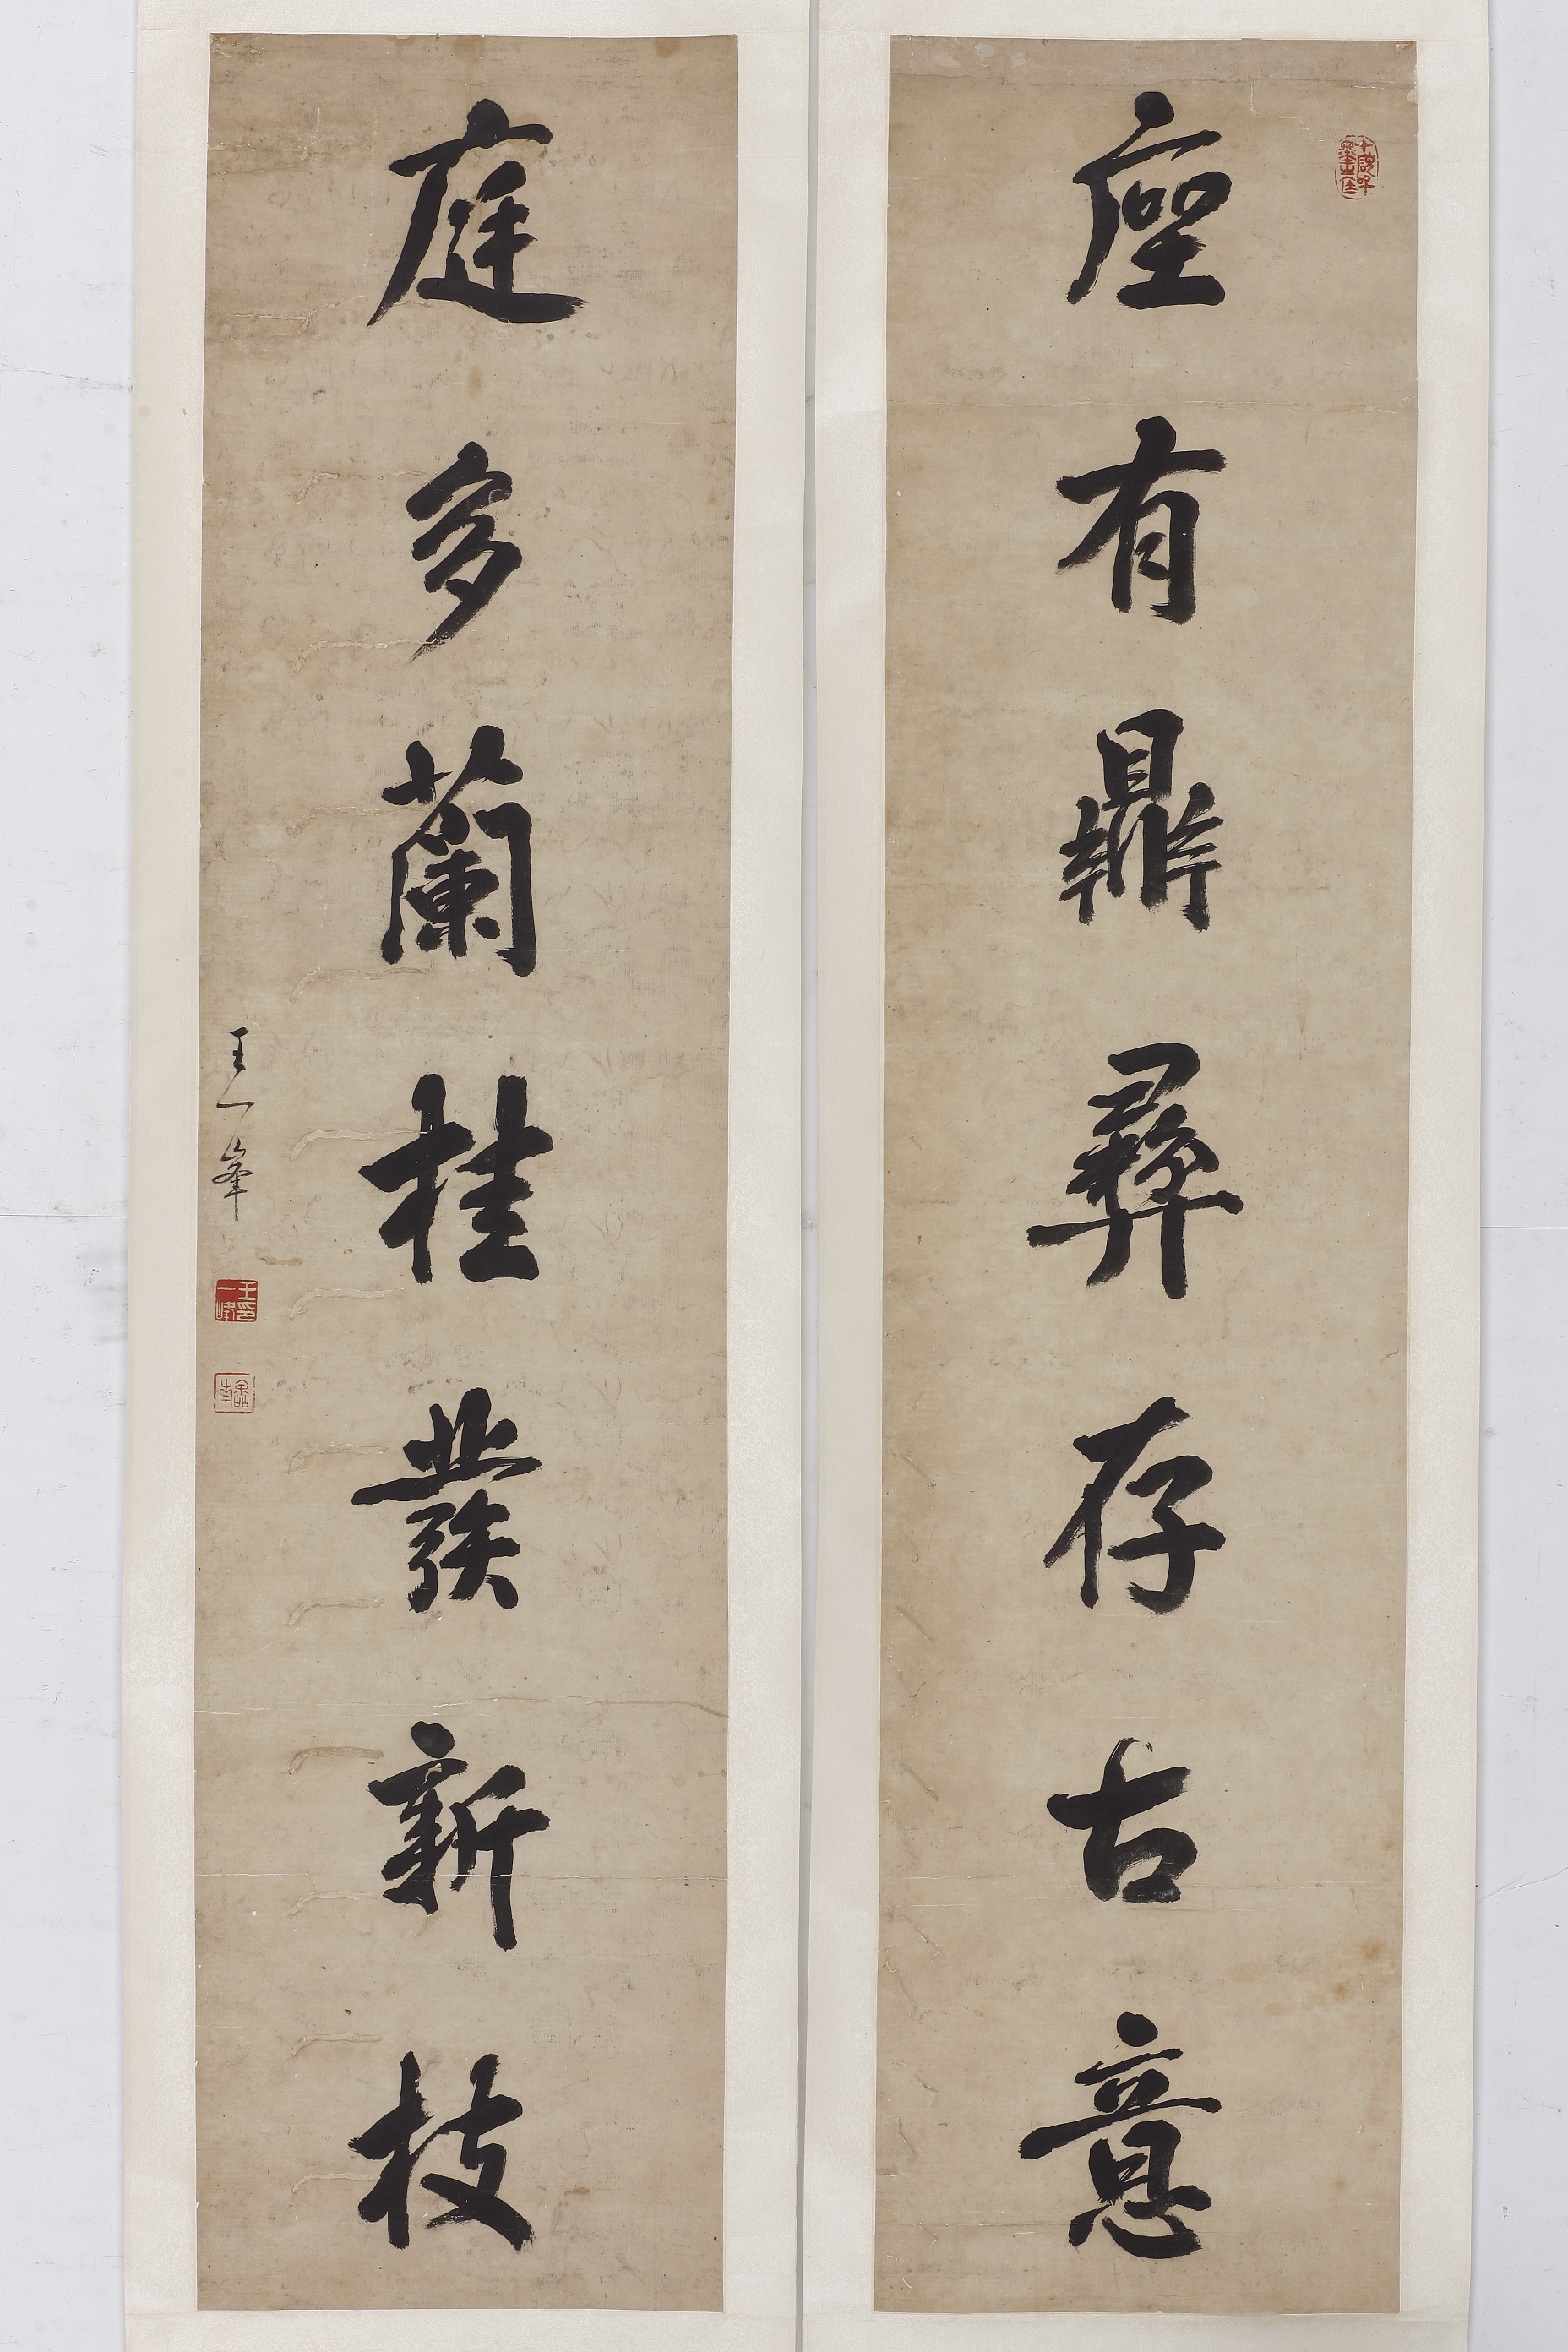 座有鼎彝存古意
庭多蘭桂發新枝
王一峯
王印一峰